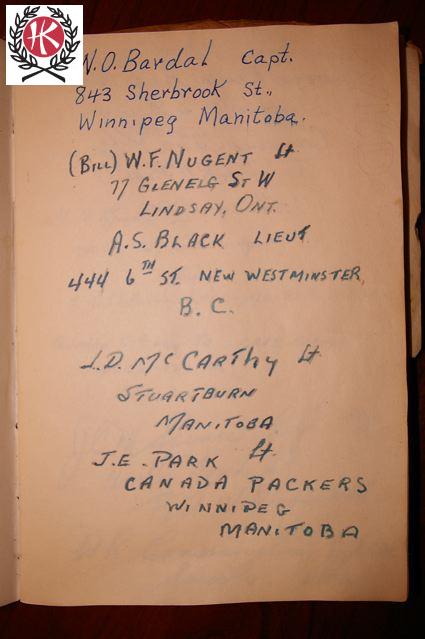 HK
N.O. Bardal Capt.
843 Sherbrook St.,
Winnipeg Manitoba.
(BILL) W.F. NUGENT Lt
77 GLENELG ST W
LINDSAY, ONT.
A.S. BLACK LIEUT
444 6TH ST. NEW WESTMINSTER,
B.C.
J.D. McCARThy Lt
STUARTBURN
MANITOBA
J.E. PARK Lt
CANADA PACKERS
WINNIPEG
MANITOBA